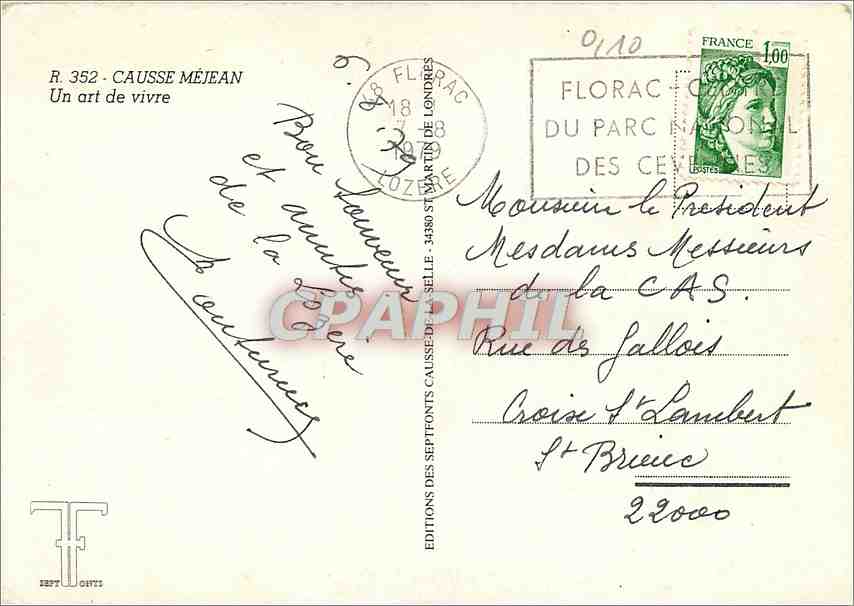 R. 352 - CAUSSE MÉJEAN
Un art de vivre
6.8.79
Bon souvenir
et amitiés
de la Lozère
48 FLORAC
18 H
7-8
1979
LOZERE
0,10
FLORAC -
DU PARC NATIONAL
DES CEVENNES
FRANCE 1,00
POSTES
EDITIONS DES SEPTFONTS CAUSSE-DE-LA-SELLE - 34380 ST MARTIN DE LONDRES
Monsieur le Président
Mesdames Messieurs
de la CAS.
Rue des Gallois
Croix St Lambert
St Brieuc
22000
CPAPHIL
SEPT FONTS